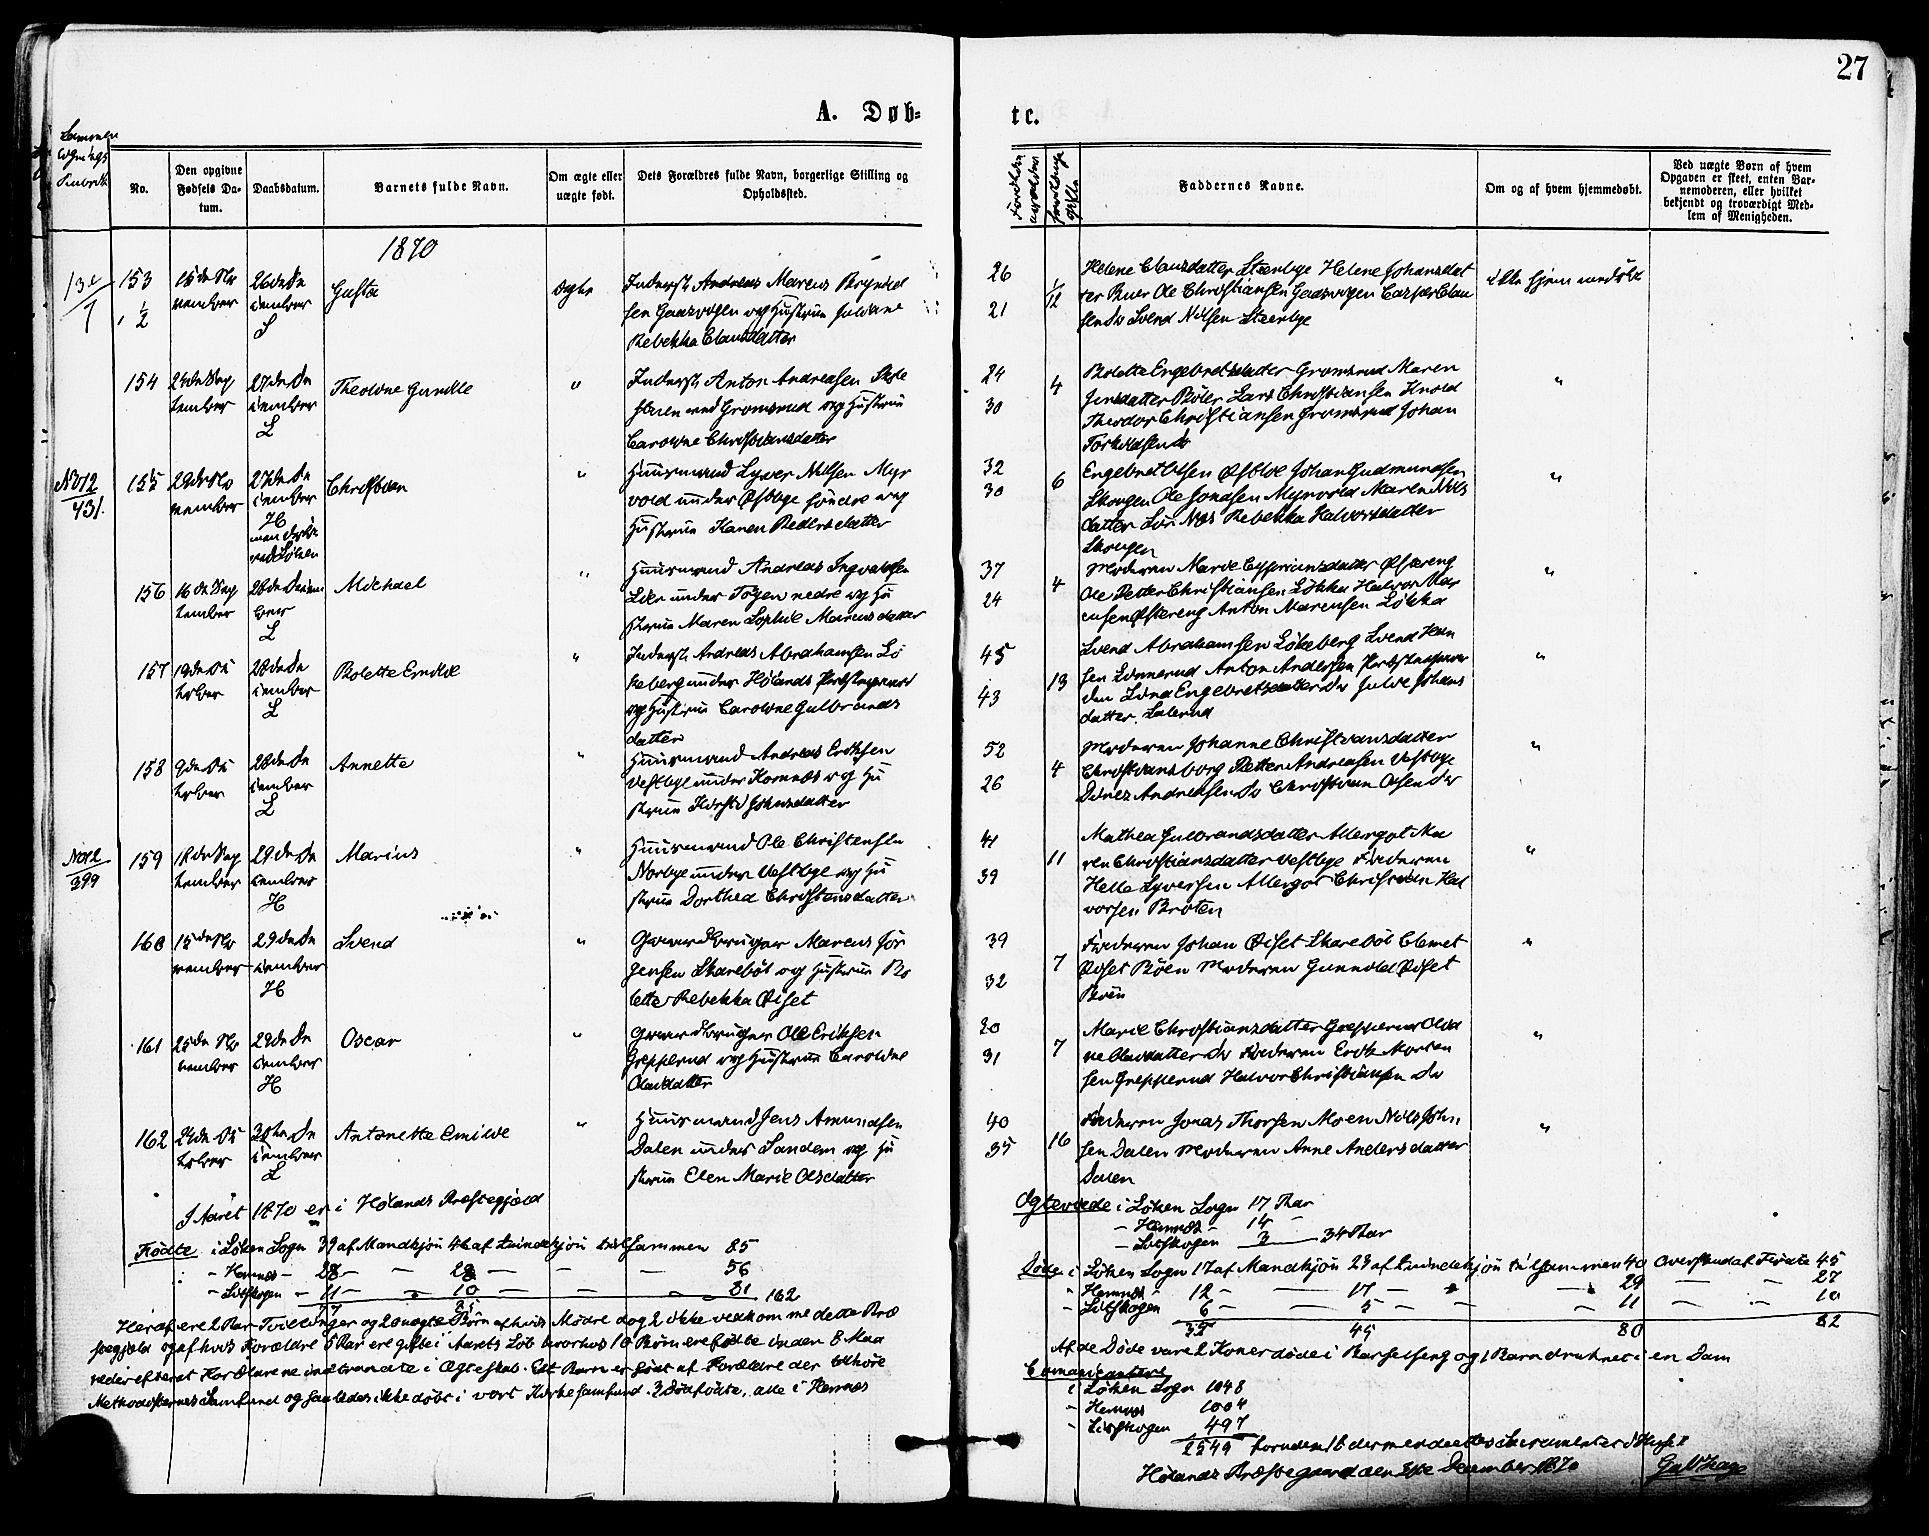 27
A. Døb-
te.
No.
Den opgivne Fødsels Datum.
Daabsdatum.
Barnets fulde Navn.
Om ægte eller uægte født.
Dets Forældres fulde Navn, borgerlige Stilling og Opholdssted.
Faddernes Navne.
Om og af hvem hjemmedøbt.
Ved uægte Børn af hvem Opgaven er skeet, enten Barnemoderen, eller hvilket bekjendt og troværdigt Medlem af Menigheden.
1870
153
15de No
vember
26de De
cember
Gusta
ægte
Inderst Andreas Marcus
sen Gaasvogen og Hustrue
Rebekka Clausdatter
26
21
Helene Clausdatter Steenbye Helene Johansdat
ter Buer Ole Christiansen Gaasvogen Casper Clau
sen Do Svend Nilsen Steenbye
ikke hjemmedøbt
154
27de De
cember
L
Theoline Gunille
"
Inderst Anton Andreasen
Gromsrud og Hustrue
Caroline Christiansdatter
24
30
4
Bolette Engebretsdatter Gromsrud Maren
Jensdatter Bøler Lars Christiansen
Theodor Christiansen Gromsrud Johan
Torkildsen Do
"
No 12
431
155
29de No
vember
27de De
cember
H
Christian
"
Huusmand Syver Nilsen Myr
vold under Østbye søndre og
Hustrue Karen Pedersdatter
32
30
6
Engebret Olsen Østbye Johan Gudmundsen
Skougen Ole Jonasen Myrvold Maren Nils
datter Rebekka Halvorsdatter
Skougen
"
156
16de Sep
tember
28de Decem
ber
L
Michael
"
Huusmand Andreas Ingvaldsen
Lier under Togen nedre og Hu
strue Maren Sophie Marcusdatter
37
24
4
Moderen Marie Cypriansdatter Østereng
Ole Petter Christiansen Løkka Halvor Mar
cusen Østereng Anton Marensen Løkka
"
157
19de Oc
tober
28de De
cember
L
Bolette Emilie
"
Inderst Andreas Abrahamsen Lø
keberg under Hølands Præstegaard
og Hustrue Caroline Gulbrands
datter
45
43
13
Svend Abrahamsen Løkeberg Svend Han
sen Anton Andersen Præstegaar
den Lina Engebretsdatter Do Julie Johans
datter
"
158
9de Oc
tober
28de De
cember
L
Annette
"
Huusmand Andreas Eriksen
Vestbye under Komnæs og Hu
strue Kirsti Johnsdatter
52
26
4
Moderen Johanne Christiansdatter
Christiansborg Petter Andreasen Vestbye
Dines Andreasen Do Christian Olsen Do
"
No 12
399
159
18de Sep
tember
29de De
cember
H
Marius
"
Huusmand Ole Christensen
Norbye under Vestbye og Hu
strue Dorthea Christensdatter
41
39
11
Mathea Gulbrandsdatter Allergot Ma
ren Christiansdatter Vestbye Faderen
Helle Syversen Allergot Christian Hal
vorsen Braten
"
160
15de No
vember
29de De
cember
H
Svend
"
Gaardbruger Marcus Jør
gensen Skarebøl og Hustrue Bo
lette Rebekka Øiset
39
32
7
Faderen Johan Øiset Skarebøl Clemet
Øiset Bøen Moderen Gunnild Øiset
Bøen
"
161
25de No
vember
29de De
cember
H
Oscar
"
Gaardbruger Ole Eriksen
Grepperud og Hustrue Caroline
Olausdatter
20
31
7
Marie Christiansdatter Grepperud Olia
ne Olausdatter Do Faderen Erik Morten
sen Grepperud Halvor Christiansen Do
"
162
24de Oc
tober
30te De
cember
L
Antonette Emilie
"
Huusmand Jens Amundsen
Dalen under Sandem og Hu
strue Elen Marie Olsdatter
40
35
16
Faderen Jonas Thorsen Moen Nils John
sen Dalen Moderen Anne Andersdatter
Dalen
"
I Aaret 1870 er i Hølands Præstegjæld
Fødte i Løken Sogn 39 af Mandkjøn 46 af Kvindekjøn tilsammen 85
- Hemnæs - 28 - - 28 - - 56
- Setskogen - 11 - 10 - - 21 162
Heraf ere 2 Par Tvillinger og 20 uægte Børn af hvis Mødre dog 2 ikke vedkomme dette Præ
stegjæld og af hvis Forældre 5 Par ere gifte i Aarets Løb hvorhos 10 Børn ere fødte inden 8 Maa
neder efterat Forældrene indtraadte i Ægteskab. Ett Barn er født af Forældre der tilhøre
Methodisternes Samfund og saaledes ikke døbt i vort Kirkesamfund. 3 Dødfødte, alle i Hemnæs
Ægteviede i Løken Sogn 17 Par
- Hemnæs - 14 -
- Setskogen 3 - 34 Par
Døde i Løken Sogn 17 af Mandkjøn 23 af Kvindekjøn tilsammen 40 Overskud af Fødte 45
- Hemnæs - 12 - 17 - 29 - 27
- Setskogen 6 - 5 - 11 - 10
35 45 80 82
Af de Døde vare 2 Koner døde i Barselseng og 1 Barn druknet i en Dam
Communicantere
i Løken Sogn 1048
- Hemnæs 1004
- Setskogen 497
2549 foruden 16 der meddeeltes Sacramentet i Huset
Hølands Præstegaard den 31te December 1870